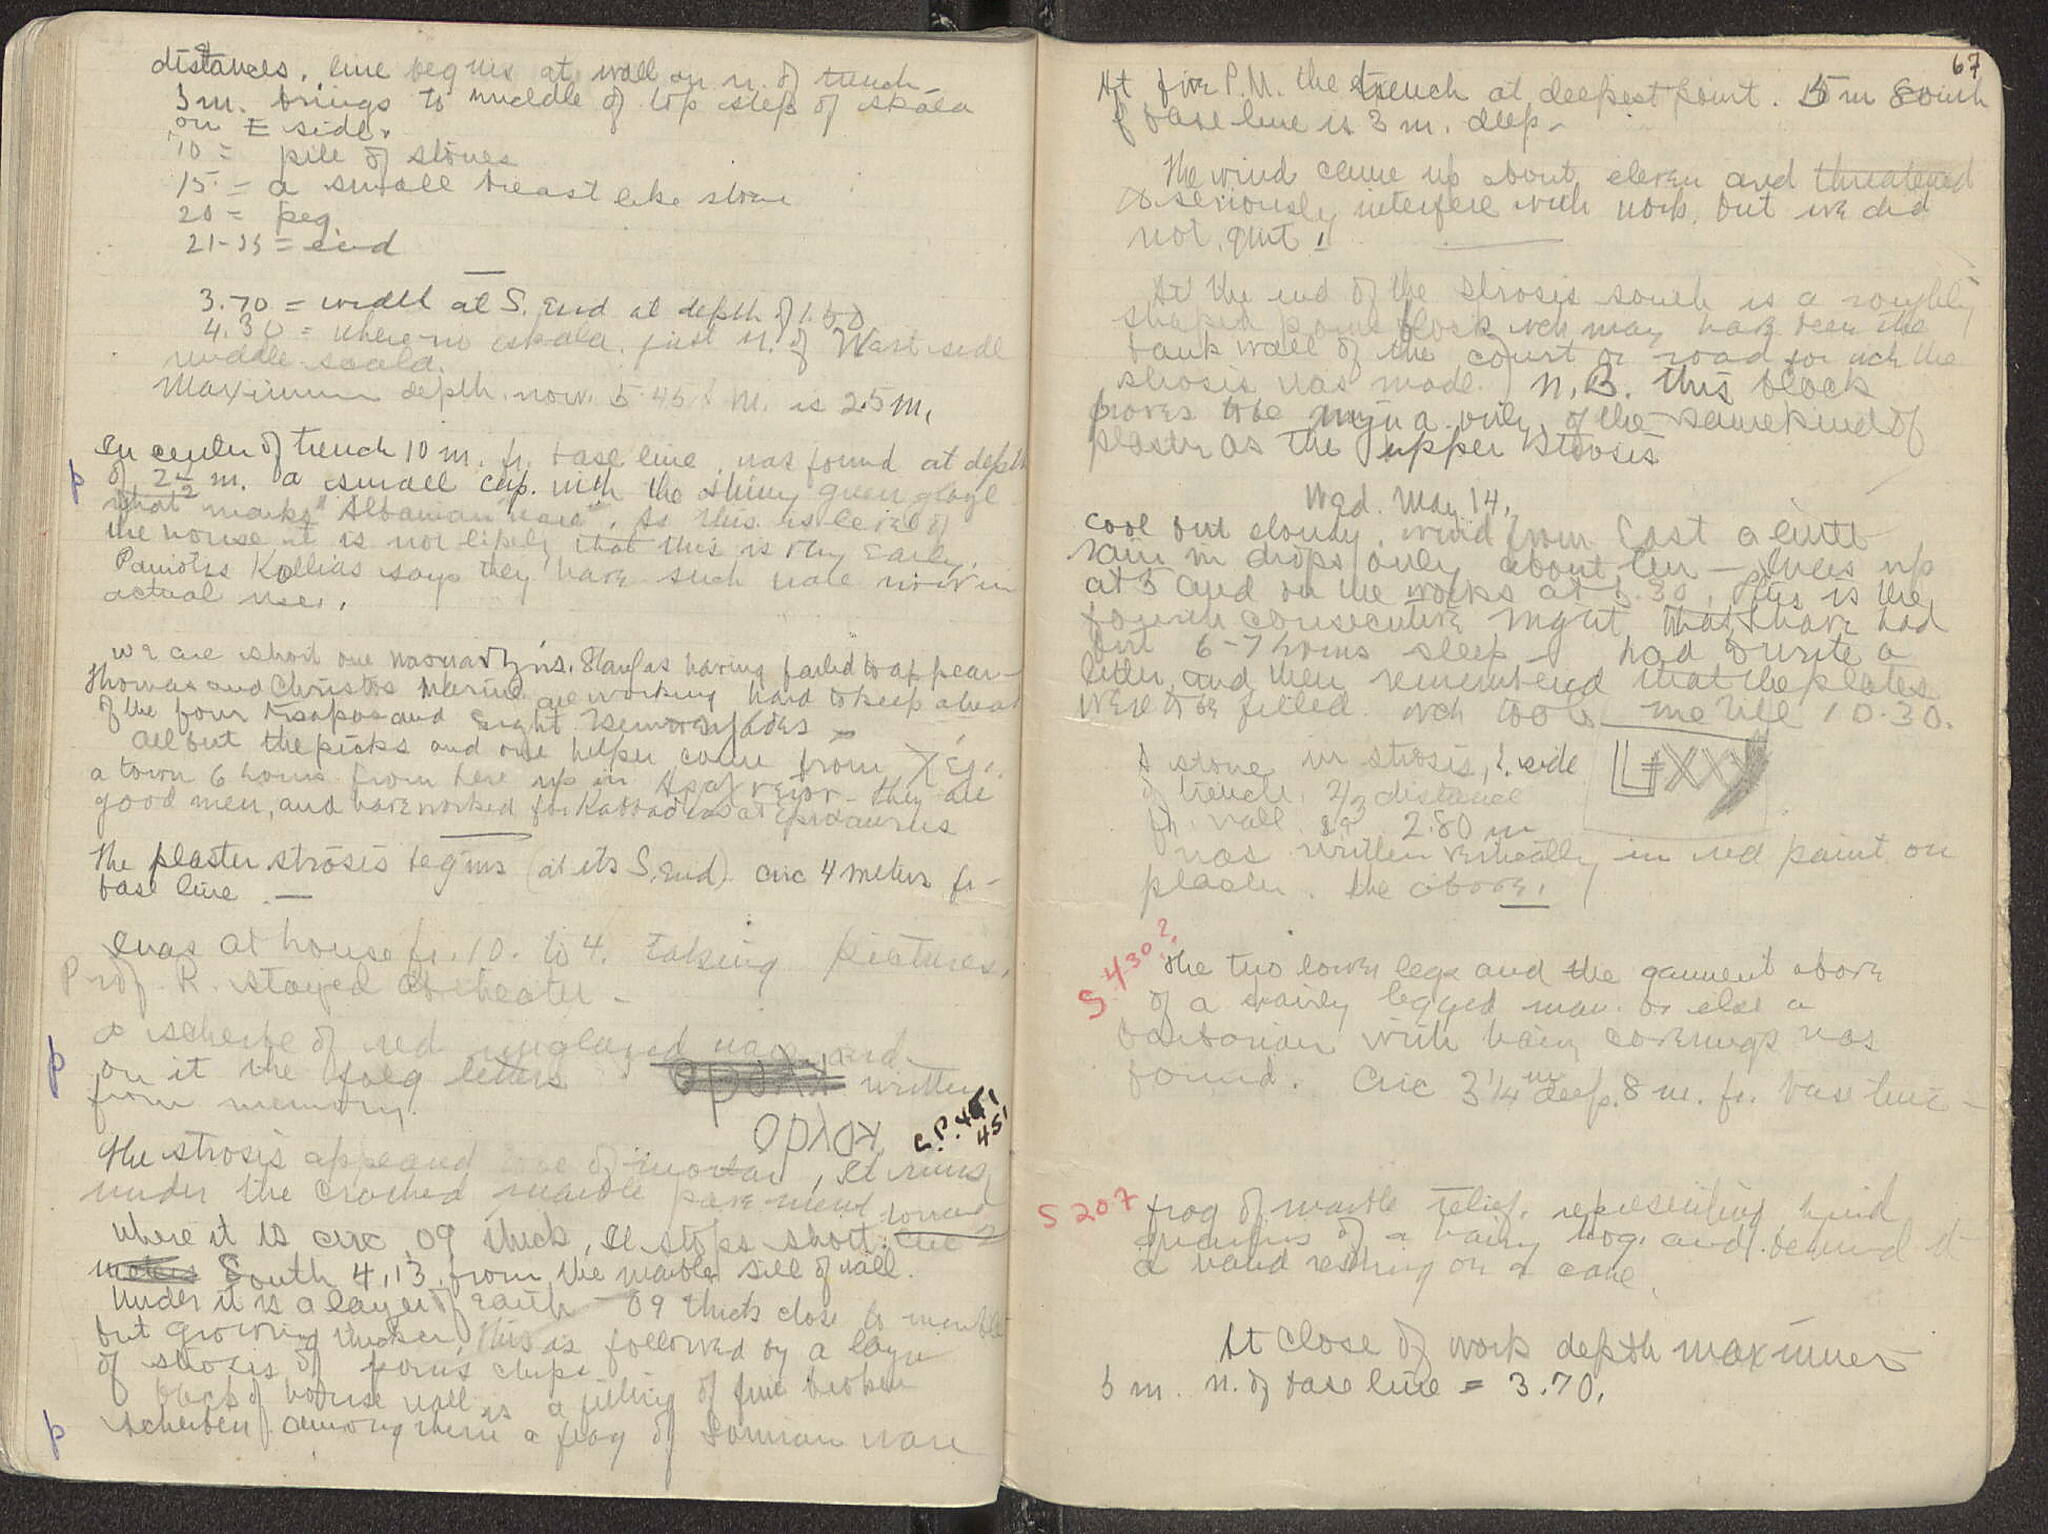 distances, line begins at wall on n. of trench
5 m. brings to middle of top step of skala
on E side.
10 = pile of stones
15 = a small breast like stone
20 = peg.
21-25 = end
3.70 = width at S. End at depth of 1.50
4.30 = where no skala, just n. of West side
middle scala.
Maximum depth now 5.45 m. is 2.5 m.
In center of trench 10 m. fr. base line, was found at depth
p of 2 1/2 m. a small cup. with the shiny green glaze
that marks "Albanian ware". As this is level of
the house it is not likely that this is very early.
Paniotis Kollias says they have such ware now in
actual use.
We are short one having failed to appear -
Thomas and Christos Marinis are working hard to keep ahead
of the four and eight
All but the picks and one helper come from
a town 6 hours from here up in they are
good men, and have worked for Kabbadias at Epidaurus
The plaster strosis begins (at its S. End) circ 4 meters fr-
base line. —
I was at house fr. 10. to 4. taking pictures,
Prof R. stayed at theater -
p a scherbe of red unglazed ware and
on it the folg letters written
from memory.
C.P. 451
451
The strosis appeared to be of mortar, it runs
under the crooked marble pavement toward
where it is circ .09 thick, it stops short
South 4.13 from the marble sill of wall.
Under it is a layer of earth - 09 thick close to
but growing thicker, this is followed by a layer
of strosis of poros chips
back of house wall is a filling of fine broken
p scherben among them a frag of Samian ware
67
At five P.M. the trench at deepest point. 5 m South
of base line is 3 m. deep -
The wind came up about eleven and threatened
to seriously interfere with work, but we did
not quit!
At the end of the strosis south is a roughly
shaped poros block wch may have been the
bank wall of the court or road for wch the
strosis was made. N.B. this block
proves to be only of the same kind of
plaster as the upper strosis
Wed. May 14.
Cool but cloudy, wind from East a little
rain in drops only about ten - Lines up
at 5 and on the works at 5.30. This is the
fourth consecutive night that I have had
but 6-7 hours sleep - I had to write a
letter, and then remembered that the plates
were to be filled wch took me till 10.30.
A stone in strosis, side
of trench, 2/3 distance
fr. wall 2.80 m
was written vertically in red paint on
plaster. the above.
S 430?
The two lower legs and the garment above
of a hairy legged man. or else a
barbarian with hairy coverings was
found. Circ 3 1/4 m deep. 8 m. fr. base line -
S 207 frag of marble relief, representing hind
quarters of a hairy dog and behind it
a hand resting on a cane.
At close of work depth maximum
5 m. n. of base line = 3.70.